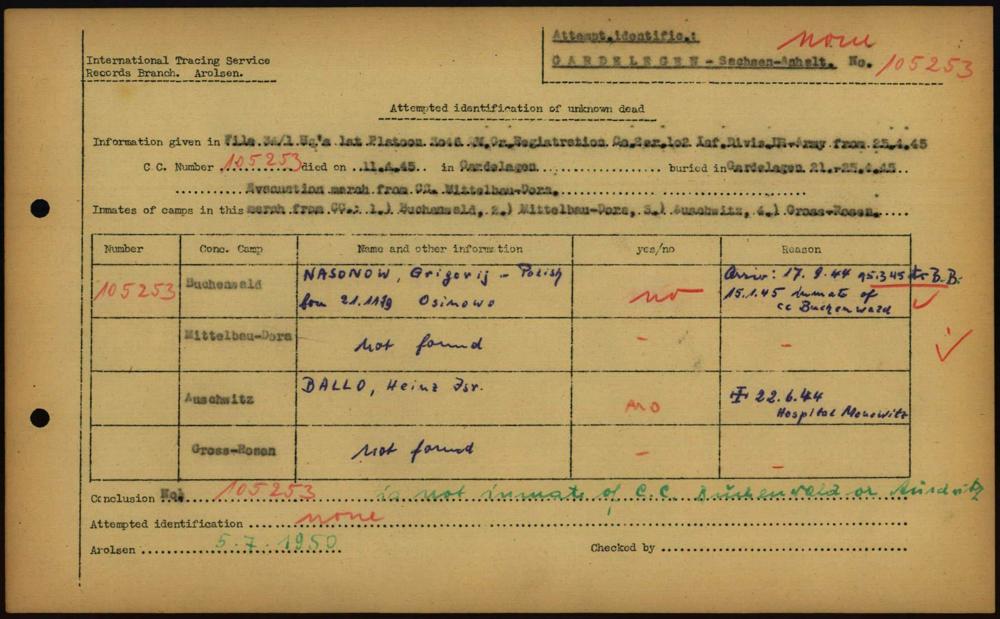 Attempt.identific.: none
GARDELEGEN - Sachsen-Anhalt. No. 105253
International Tracing Service
Records Branch. Arolsen.
Attempted identification of unknown dead
Information given in File 34/1 Hq's 1st Platoon 3046 Gr. Registration Co. 102 Inf. Divis. Army from 25.4.45
C C. Number 105253 died on 11.4.45 in Gardelegen buried in Gardelegen 21.-25.4.45
Evacuation march from CC. Mittelbau-Dora.
Inmates of camps in this march from CC.: 1.) Buchenwald, 2.) Mittelbau-Dora, 3.) Auschwitz, 4.) Gross-Rosen.
Number Conc. Camp Name and other information yes/no Reason
105253 Buchenwald NASONOW, Grigorij - Polish no Arriv: 17.9.44
born 21.11.19 Osinowo 15.1.45 inmate of
cc Buchenwald
Mittelbau-Dora not found - -
Auschwitz BALLO, Heinz Isr. no 22.6.44
Hospital Monowitz
Gross-Rosen not found - -
Conclusion No. 105253 is not inmate of C.C. Buchenwald or Auschwitz
Attempted identification none
Arolsen 5.7.1950 Checked by